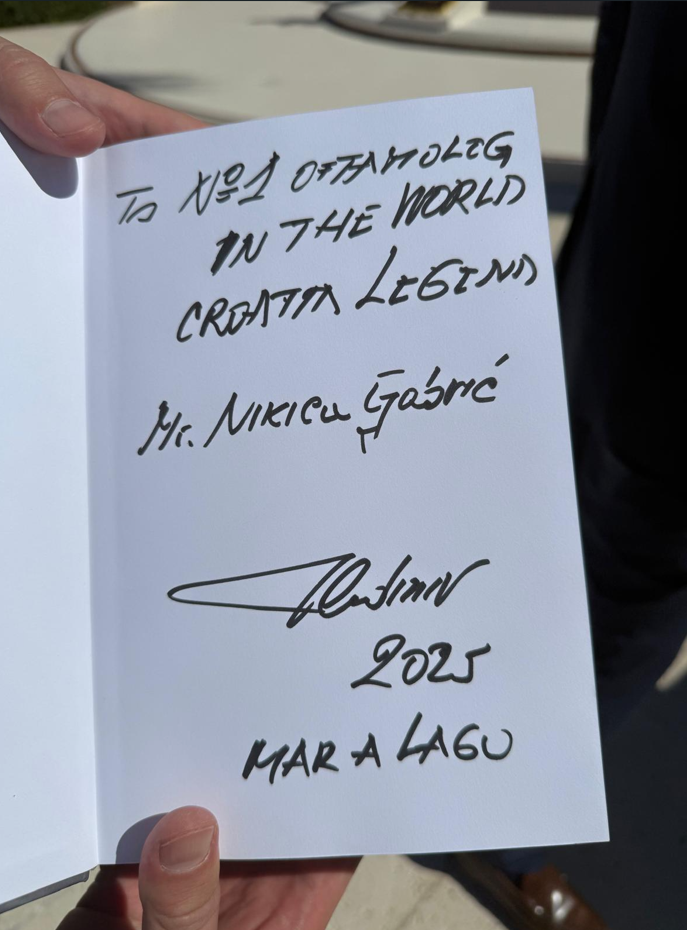 To №1 OFTAMOLEG
IN THE WORLD
CROATIA LEGEND
Mr. NIKICA Gabrić
Vladimir
2025
MAR A LAGO